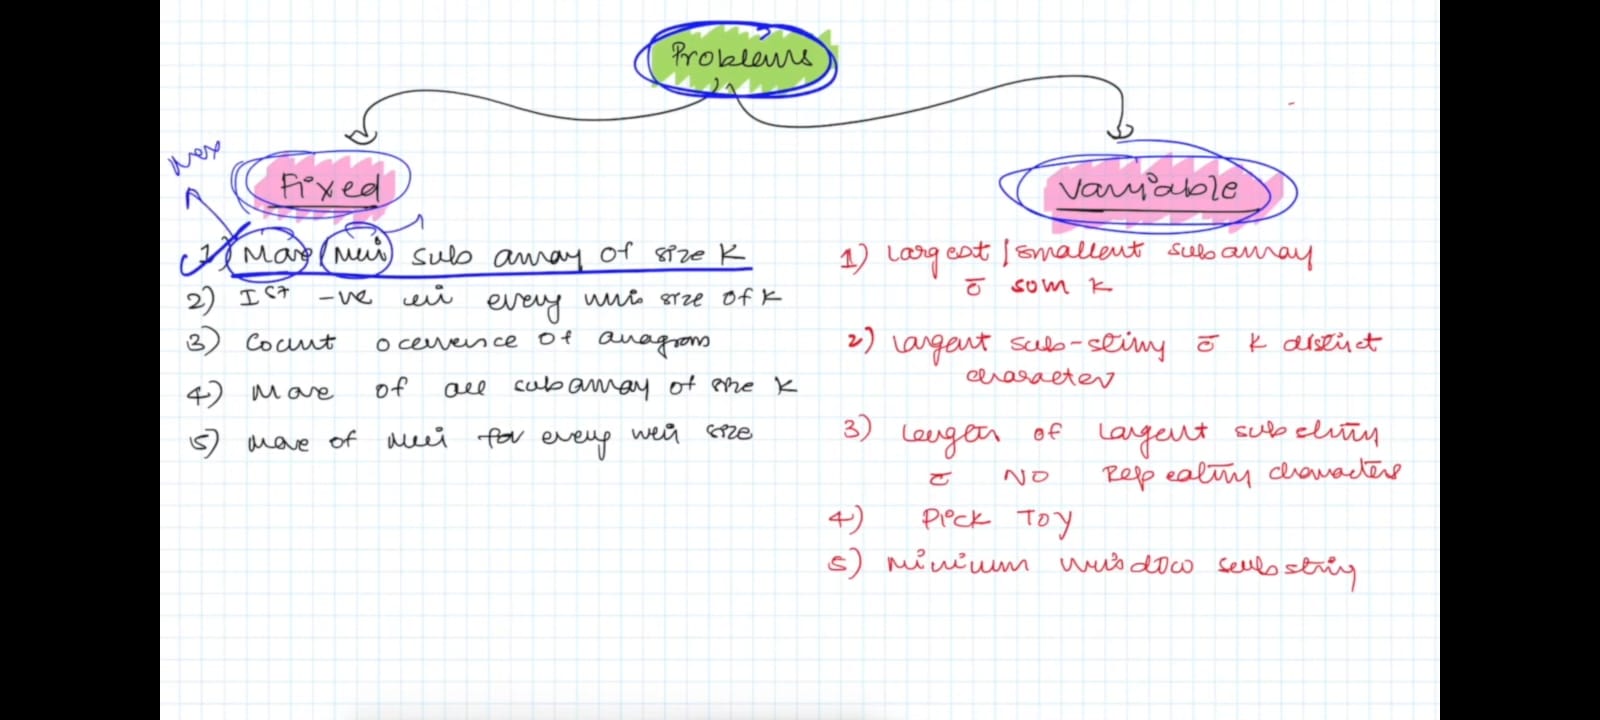 Problems
Max
Fixed
Variable
1) Max/Min sub array of size K
2) Ist -ve in every win size of K
3) Count occurence of anagram
4) Max of all subarray of size K
5) Max of Min for every win size
1) Largest/smallest subarray
c̄ sum K
2) Largest sub-string c̄ K distinct
character
3) Length of Largest substring
c̄ NO Repeating characters
4) Pick TOY
5) Minimum window substring